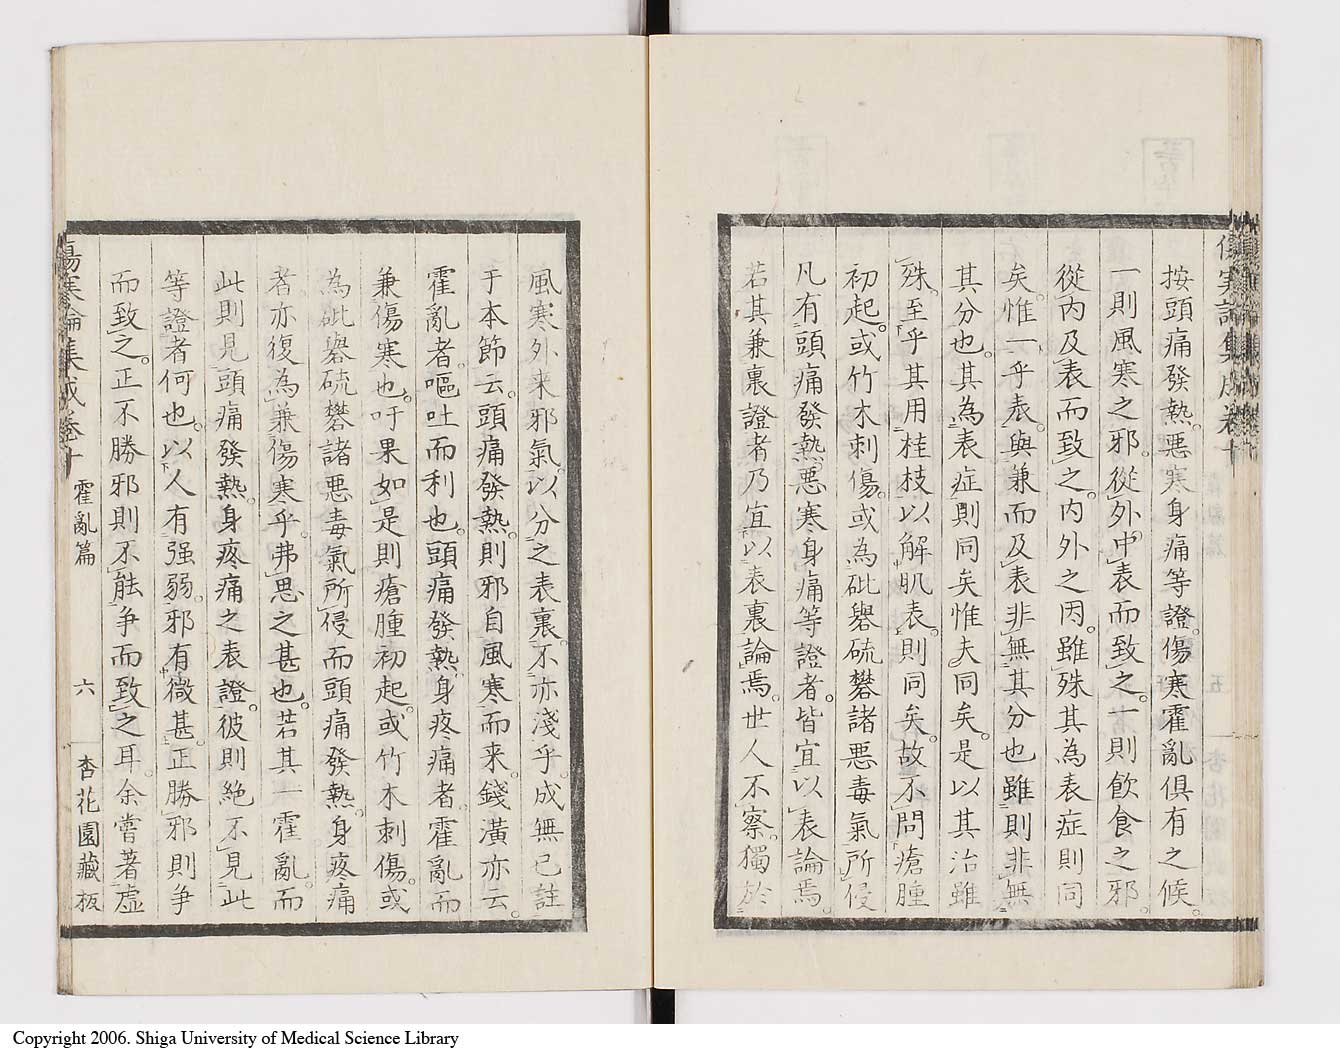 傷寒論集成卷十
按頭痛發熱。惡寒身痛等證。傷寒霍亂俱有之候。
一則風寒之邪。從外中表而致之。一則飲食之邪。
從內及表而致之。內外之因。雖殊其為表症則同
矣。惟一乎表。與兼而及表非無其分也。雖則非無
其分也。其為表症則同矣。惟夫同矣。是以其治雖
殊。至乎其用桂枝以解肌表。則同矣。故不問瘡腫
初起。或竹木刺傷。或為砒礜硫礬諸惡毒氣所侵
凡有頭痛發熱。惡寒身痛等證者。皆宜以表論焉。
若其兼裏證者。乃宜以表裏論焉。世人不察。獨於
風寒外来邪氣。以分之表裏。不亦淺乎。成無已註
于本節云。頭痛發熱。則邪自風寒而来。錢潢亦云。
霍亂者。嘔吐而利也。頭痛發熱。身疼痛者。霍亂而
兼傷寒也。吁果如是則瘡腫初起。或竹木刺傷。或
為砒礜硫礬諸惡毒氣所侵而頭痛發熱。身疼痛
者。亦復為兼傷寒乎。弗思之甚也。若其一霍亂。而
此則見頭痛發熱。身疼痛之表證。彼則絕不見此
等證者何也。以人有强弱。邪有微甚。正勝邪則爭
而致之。正不勝邪則不能爭而致之耳。余嘗著虛
傷寒論集成卷十 霍亂篇 六 杏花園藏板
Copyright 2006. Shiga University of Medical Science Library